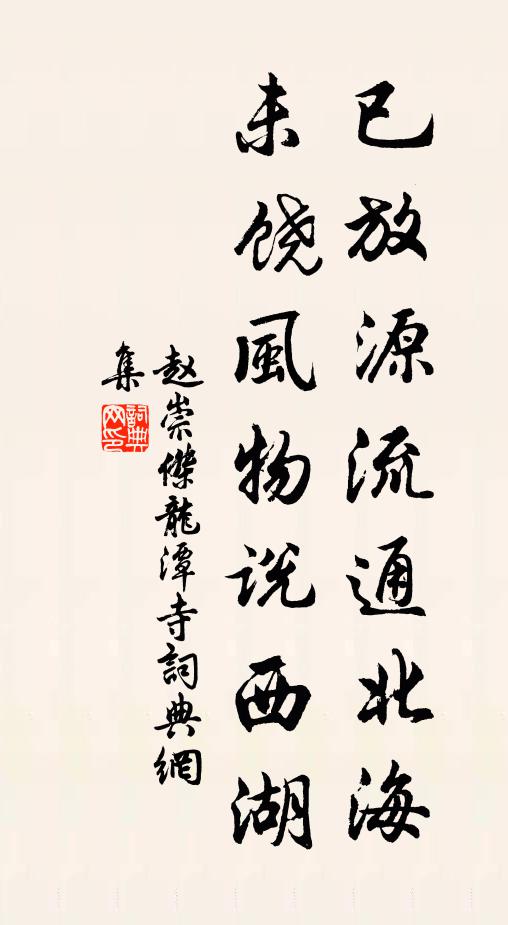 已放源流通北海
未饶風物说西湖
赵崇傑龍潭寺詞典網
集
詞典
网印